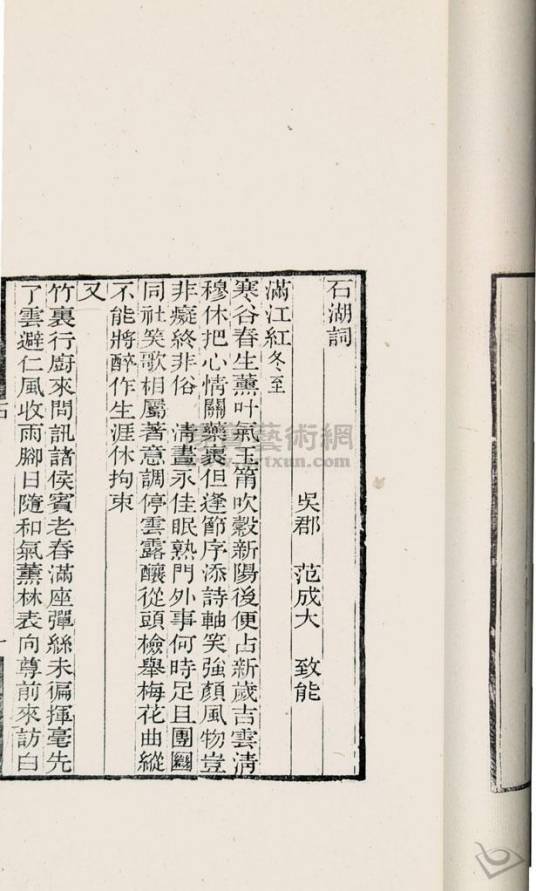 石湖詞
吳郡 范成大 致能
滿江紅冬至
寒谷春生薰叶氣玉筩吹穀新陽後便占新歲吉雲清
穆休把心情關藥裹但逢節序添詩軸笑強顏風物豈
非癡終非俗 清晝永佳眠熟門外事何時足且團圞
同社笑歌相屬著意調停雲露釀從頭檢舉梅花曲縱
不能將醉作生涯休拘束
又
竹裏行廚來問訊諸侯賓老春滿座彈絲未徧揮毫先
了雲避仁風收雨腳日隨和氣薰林表向尊前來訪白
石
一
藝術網
rtxun.com